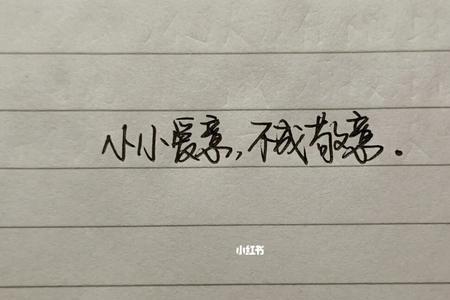 小小爱意，不成敬意．
小红书